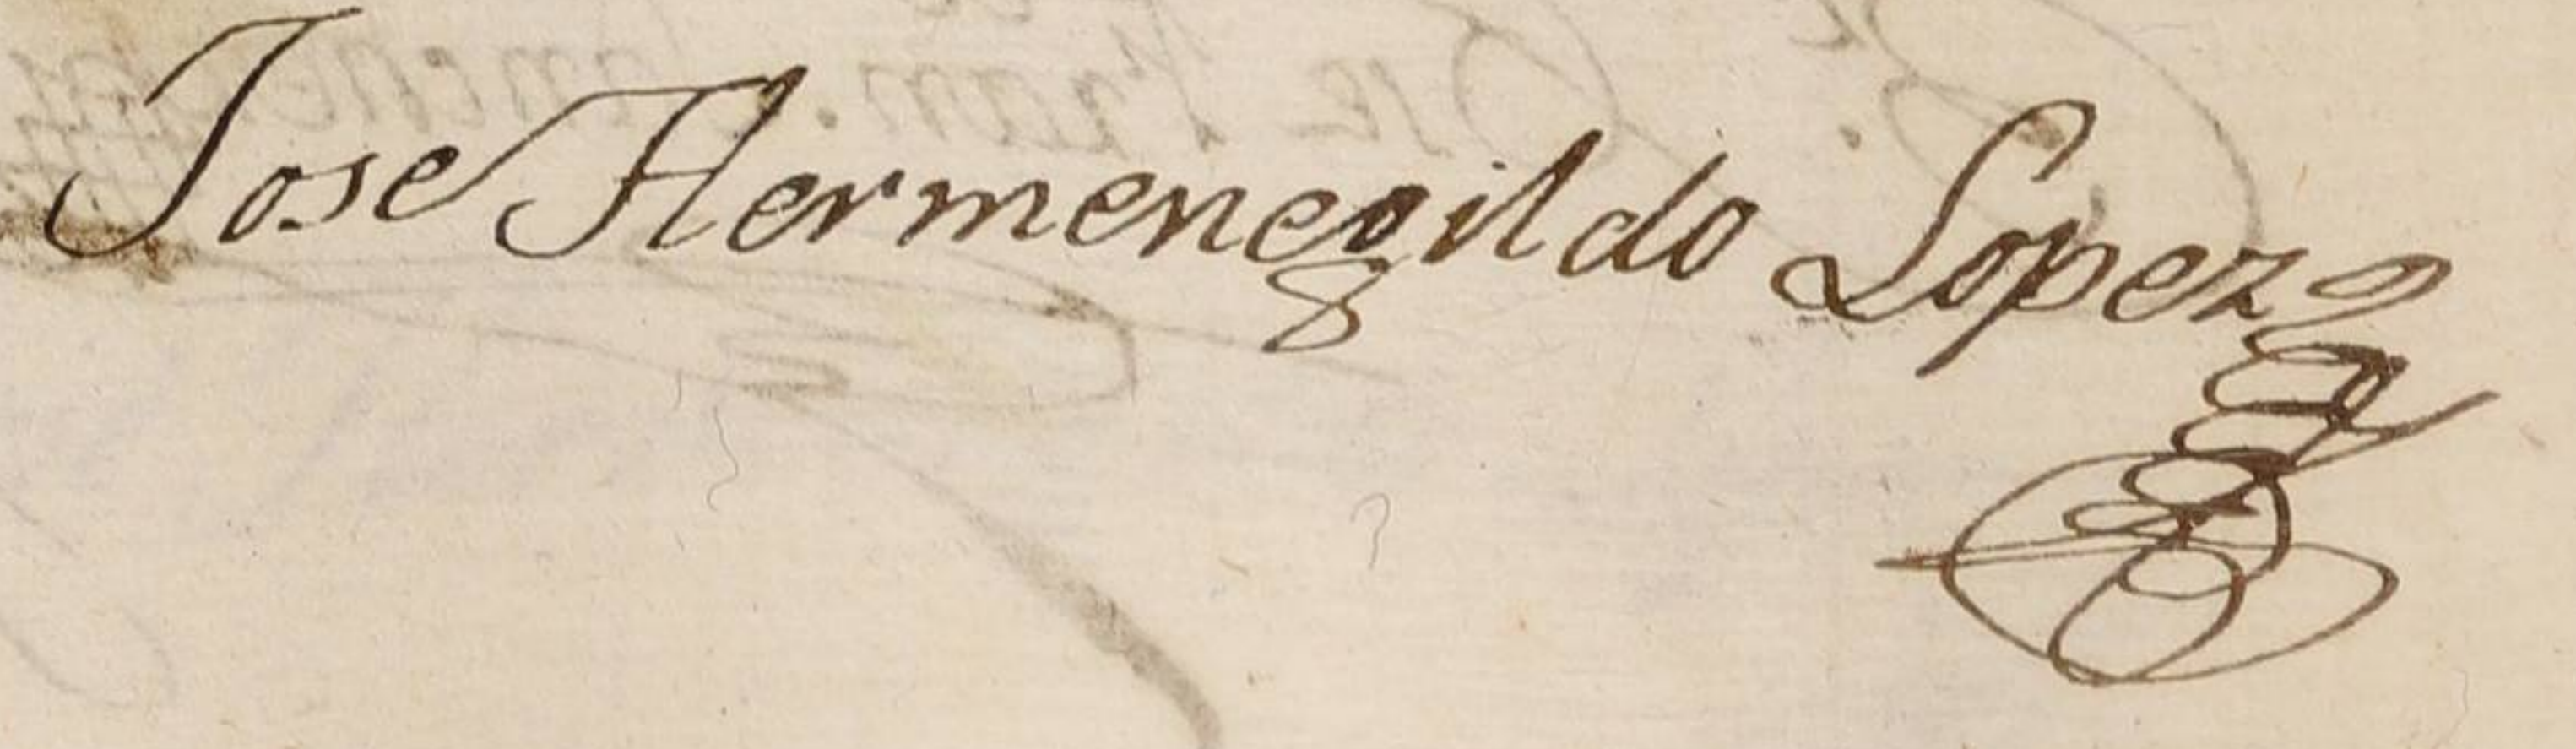 Jose Hermenegildo Lopez